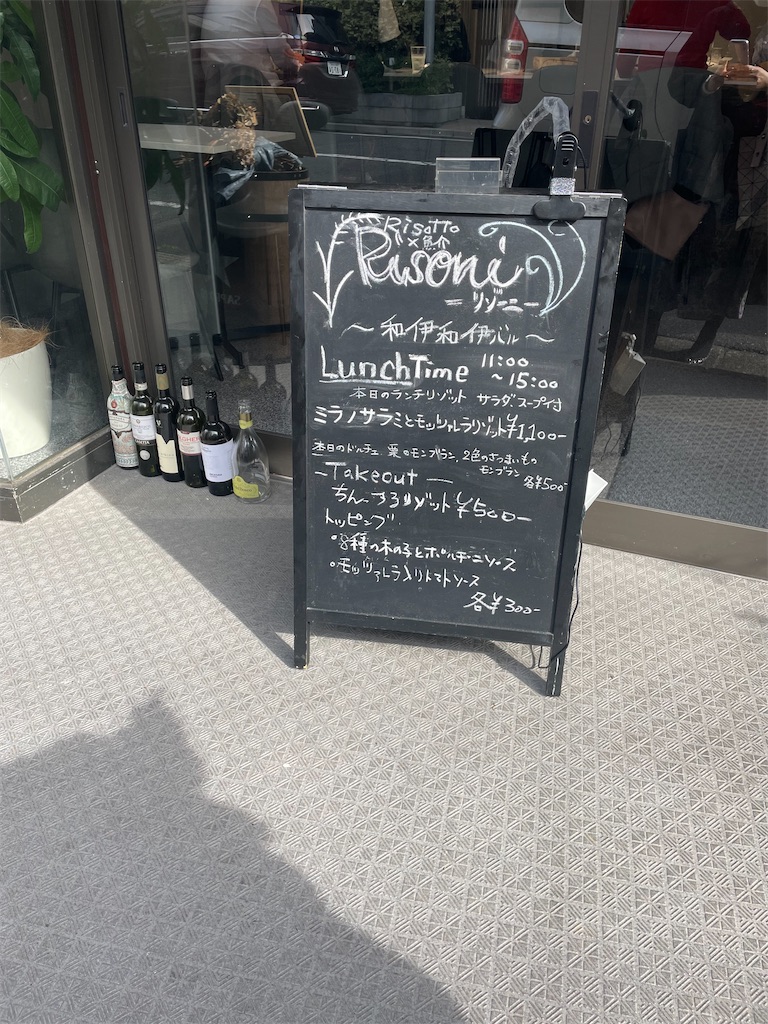 Risotto
×魚介
Risoni
＝リゾーニ－
〜和伊和伊バル〜
LunchTime 11:00
〜15:00
本日のランチリゾット サラダスープ付
ミラノサラミとモッツァレラリゾット¥1,100-
本日のドルチェ、栗のモンブラン、2色のさつまいもの
モンブラン
各¥500-
－Takeout－
ちん〜するリゾット ¥500-
トッピング
・8種の木の子とポルチーニソース
・モッツァレラ入りトマトソース
各¥300-